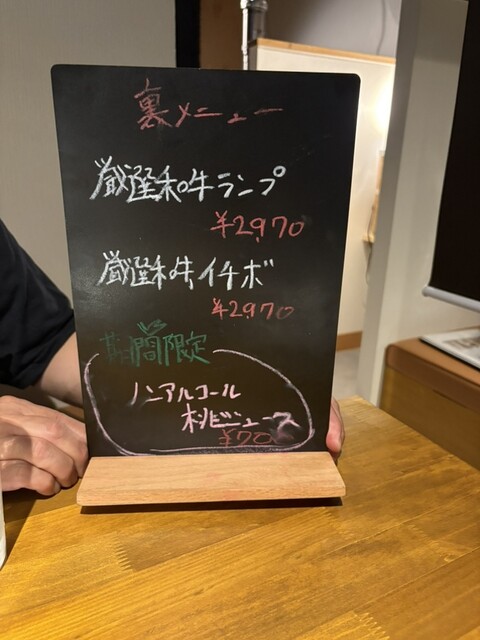 裏メニュー
厳選和牛ランプ
¥2,970
厳選和牛イチボ
¥2,970
期間限定
ノンアルコール
桃ジュース